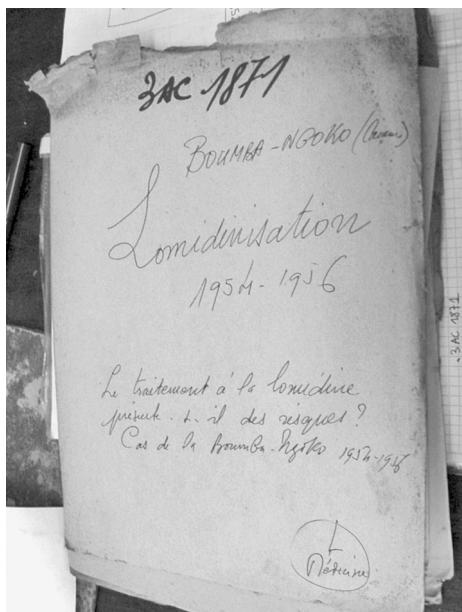 3AC 1871
BOUMBA-NGOKO
Lomidinisation
1954-1956
Le traitement à la lomidine
présente-t-il des risques?
Cas de la Boumba-Ngoko 1954-1956
Médecine
3AC 1871